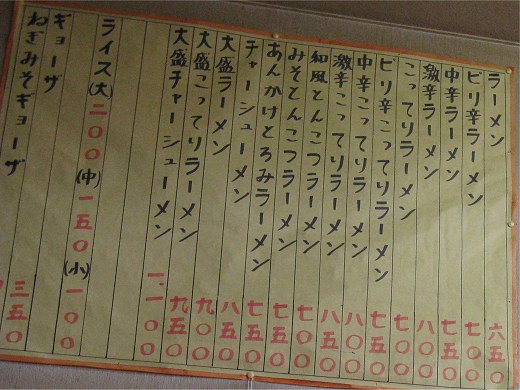 ラーメン 六五〇
ピリ辛ラーメン 七〇〇
中辛ラーメン 七五〇
激辛ラーメン 八〇〇
こってりラーメン 七〇〇
ピリ辛こってりラーメン 七五〇
中辛こってりラーメン 八〇〇
激辛こってりラーメン 八五〇
和風とんこつラーメン 七〇〇
みそとんこつラーメン 七五〇
あんかけとろみラーメン 七五〇
チャーシューメン 八五〇
大盛ラーメン 九〇〇
大盛こってりラーメン 九五〇
大盛チャーシューメン 一、一〇〇
ライス(大)二〇〇(中)一五〇(小)一〇〇
ギョーザ 三五〇
ねぎみそギョーザ